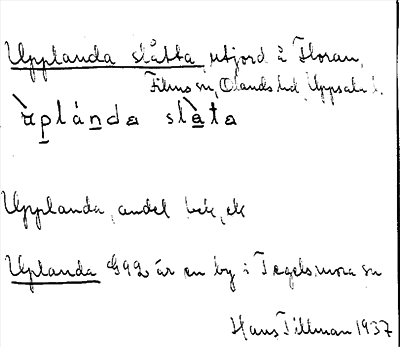 Upplanda slåtta, utjord å Floran,
Films sn, Olands hd, Uppsala l.
ùplánda slàta
Upplanda, andel bek., ek
Uplanda G92 är en by i Tegelsmora sn
Hans Tillman 1937